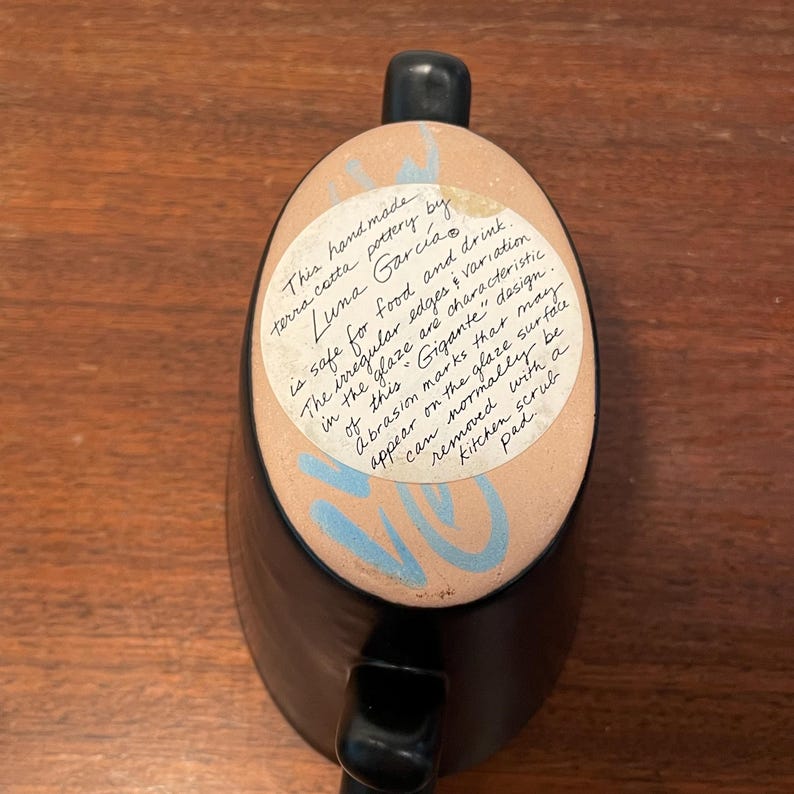 This handmade
terra cotta pottery by
Luna García®
is safe for food and drink.
The irregular edges & variation
in the glaze are characteristic
of this "Gigante" design.
Abrasion marks that may
appear on the glaze surface
can normally be
removed with a
kitchen scrub
pad.